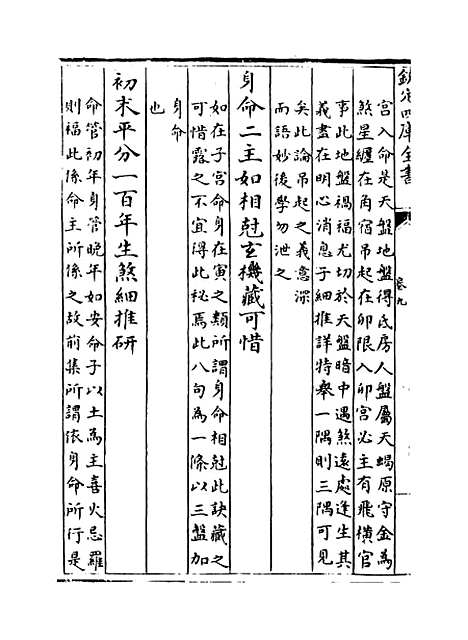 欽定四庫全書
卷九
宮入命是天盤地盤得氐房人盤屬天蝎原守金為
煞星纏在角宿吊起在卯限入卯宮必主有飛橫官
事此地盤禍福尤切於天盤暗中遇煞遠處逢生其
義盡在明心消息子細推詳特舉一隅則三隅可見
矣此論吊起之義意深
而語妙後學勿泄之
身命二主如相尅玄機藏可惜
如在子宮命身在寅之類所謂身命相尅此訣藏之
可惜露之不宜得此秘焉此八句為一條以三盤加
身命
也
初末平分一百年生煞細推研
命管初年身管晚年如安命子以土為主喜火忌羅
則福此係命主所係之故前集所謂依身命所行是